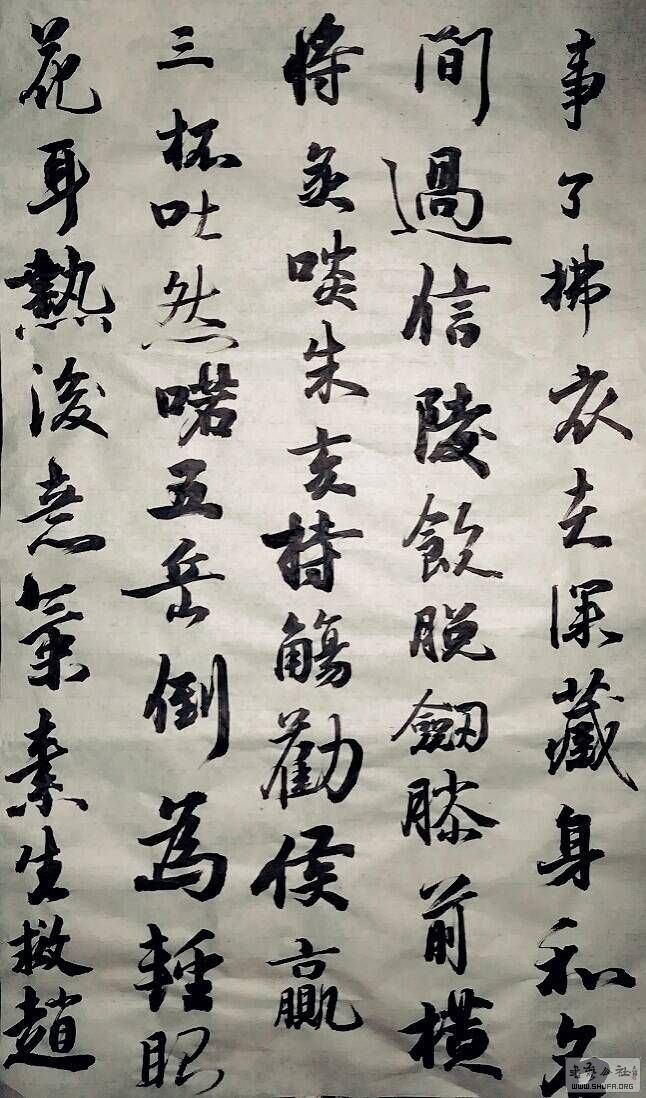 事了拂衣去深藏身和名
間過信陵飲脱劔膝前横
將炙啖朱亥持觴勸侯贏
三杯吐然喏五岳倒為輕眼
花耳熱後意氣素生救趙
书艺公社
WWW.SHUFA.ORG